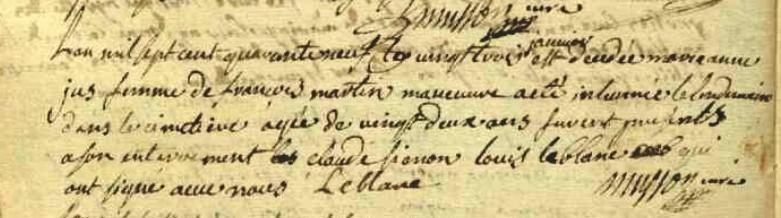 musson curé
L'an mil sept cent quarante neuf le vingt trois janvier est decedée marie anne
jus femme de francois martin maneuvre a eté inhumée le lendemain
dans le cimetiére agée de vingt deux ans furent presents
a son enterrement claude simon louis leblanc qui
ont signé avec nous Leblanc musson curé